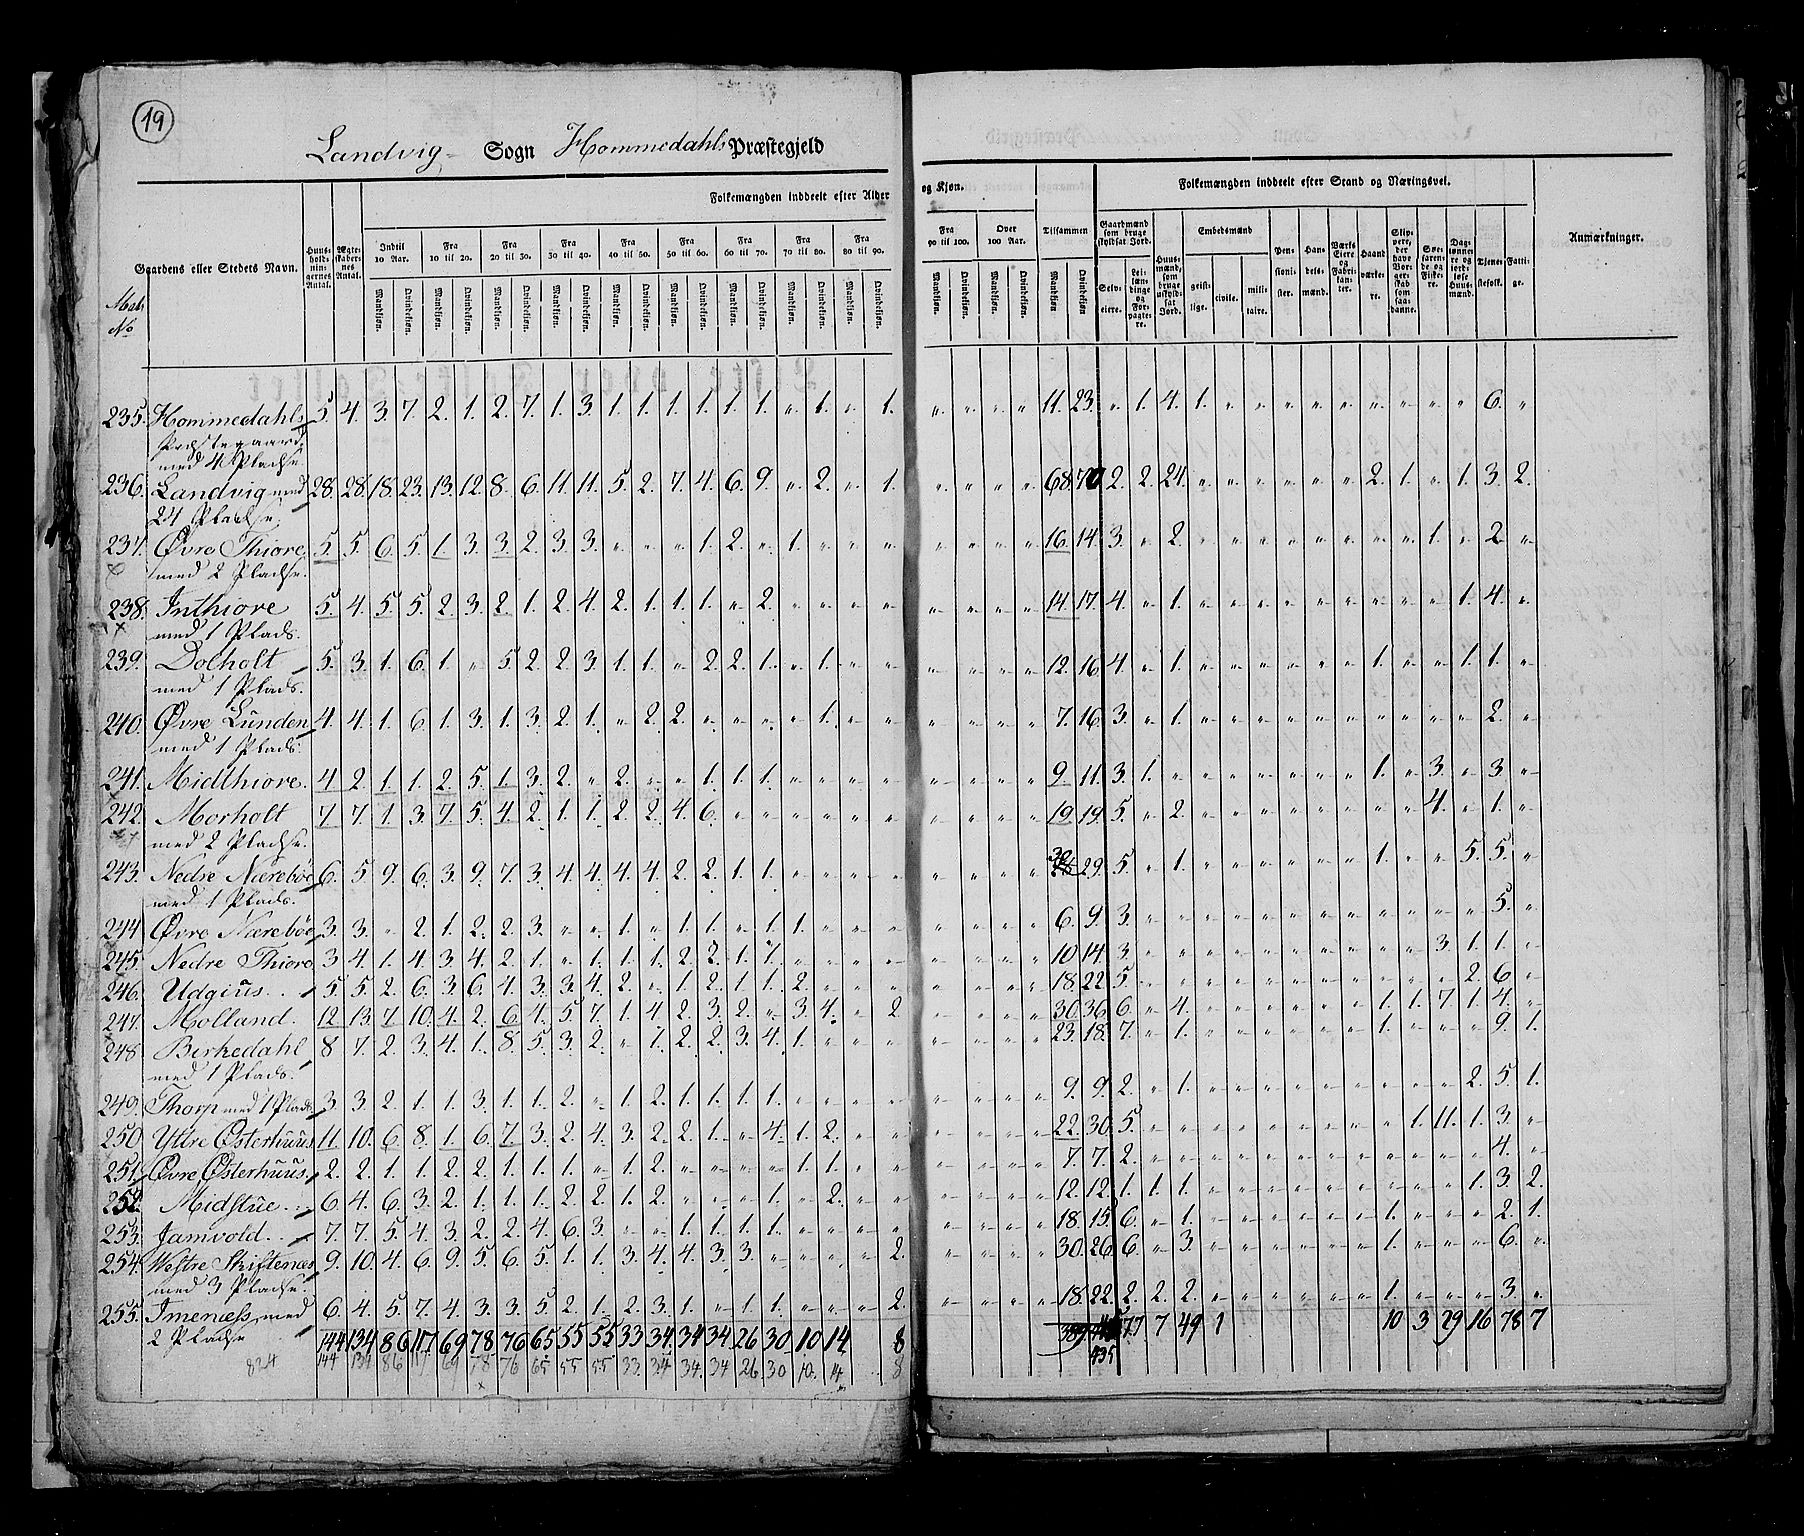 19
Landvig Sogn Hommedahls Præstegjeld
Folkemængden inddeelt efter Alder og Kjøn.
Folkemængden inddeelt efter Stand og Næringsvei.
Gaardens eller Stedets Navn.
Matr No
Huusholdningernes Antal.
Ægteskabernes Antal.
Indtil 10 Aar.
Fra 10 til 20.
Fra 20 til 30.
Fra 30 til 40.
Fra 40 til 50.
Fra 50 til 60.
Fra 60 til 70.
Fra 70 til 80.
Fra 80 til 90.
Fra 90 til 100.
Over 100 Aar.
Tilsammen
Mandkjøn. Qvindekjøn.
Gaardmænd som bruge skyldsat Jord.
Selveiere.
Leilændinge og Forpagtere.
Huusmænd, som bruge uskyldsat Jord.
Embedsmænd
geistlige. civile. militaire.
Pensionister.
Handelsmænd.
Værks Eiere og Fabrikanter.
Haandværkere.
Slippere, der have Borgerskab som saadanne.
Søefarende og Fiskere.
Dagltønnere og jordløse Huusmænd.
Tjenestefolk.
Fattige.
Anmærkninger.
235. Hommedahls 5. 4. 3. 7. 2. 1. 2. 7. 1. 3. 1. 1. 1. 1. 1. 1. „ 1. „ 1. „ „ „ „ 11. 23. „ 1. 4. 1. „ „ „ „ „ „ „ „ „ 6. „
Præstegaard
med 4 Pladse
236. Landvig med 28. 28. 18. 23. 13. 12. 8. 6. 11. 11. 5. 2. 7. 4. 6. 9. „ 2. „ 1. „ „ „ „ 68. 70 2. 2. 24. „ „ „ „ „ „ 2. 1. „ 1. 3. 2.
24 Pladse.
237. Øvre Thiore 5. 5. 6. 5. 1. 3. 3. 2. 3. 3. „ „ „ 1. 2. „ 1. „ „ „ „ „ „ „ 16. 14. 3. „ 2. „ „ „ „ „ „ „ „ 1. „ 2. „
med 2 Pladse.
238. Inthiore 5. 4. 5. 5. 2. 3. 2. 1. 2. 4. 2. 1. 1. 1. „ 2. „ „ „ „ „ „ „ „ 14. 17. 4. „ 1. „ „ „ „ „ „ „ „ „ 1. 4. „
med 1 Plads.
239. Dolholt 5. 3. 1. 6. 1. „ 5. 2. 2. 3. 1. 1. „ 2. 2. 1. „ 1. „ „ „ „ „ „ 12. 16. 4. „ 1. „ „ „ „ „ „ 1. „ „ 1. 1. „
med 1 Plads.
240. Øvre Lunden 4. 4. 1. 6. 1. 3. 1. 3. 2. 1. „ 2. 2. „ „ „ „ 1. „ „ „ „ „ „ 7. 16. 3. „ 1. „ „ „ „ „ „ „ „ „ „ 2. „
med 1 Plads.
241. Midthiore. 4 2. 1. 1. 2. 5. 1. 3. 2. „ 2. „ „ 1. 1. 1. „ „ „ „ „ „ „ „ 9. 11. 3. 1. „ „ „ „ „ „ „ 1. „ 3. „ 3. „
242. Morholt 7. 7. 1. 3. 7. 5. 4. 2. 1. 1. 2. 2. 4. 6. „ „ „ „ „ „ „ „ „ „ 19. 19. 5. „ 2. „ „ „ „ „ „ „ „ 4. „ 1. „
med 2 Pladse.
243. Nedre Nærebøe 6. 5 9. 6. 3. 9. 7. 3. 4. 4. 4. 4. 2. 2. 1. 1. „ „ „ „ „ „ „ „ 30 29. 5. „ 1. „ „ „ „ „ „ 1. „ „ 5. 5. „
med 1 Plads.
244. Øvre Nærebøe 3. 3. „ 2. 1. 2. 2. 3. „ „ 1. „ 1. 1. „ 1. 1. „ „ „ „ „ „ „ 6. 9. 3. „ „ „ „ „ „ „ „ „ „ „ „ 5. „
245. Nedre Thiore 3 4. 1. 4 3 4. 2. 1. „ 1. 1. 1. 2. 2. 1. 1. „ „ „ „ „ „ „ „ 10 14. 3. „ „ „ „ „ „ „ „ „ „ 3. 1. 1. „
246. Udgiûs. 5. 5. 2. 6. 3. 6. 4. 3. 3. 4. 2. „ 1. 2. 1. 1. 2. „ „ „ „ „ „ „ 18. 22. 5. „ „ „ „ „ „ „ „ „ „ „ 2. 6. „
247. Molland. 12. 13. 7. 10. 4. 2. 6. 4. 5. 7. 1. 4. 2. 3. 2. „ 3. 4. „ 2. „ „ „ „ 30. 36. 6. „ 4. „ „ „ „ „ „ 1. 1. 7. 1. 4. „
248. Birkedahl 8 7. 2. 3. 4. 1. 8. 5. 3. 2. „ 1. 2. 2. 3. 4. 1. „ „ „ „ „ „ „ 23. 18. 7. „ 1. „ „ „ „ „ „ 1. „ „ „ 9. 1.
med 1 Plads.
249. Thorp med 1 Plads 3. 3. 2. 1. 1. 3. 1. 1. 2. „ 1. 2. 1. 1. 1. 1. „ „ „ „ „ „ „ „ 9. 9. 2. „ 1. „ „ „ „ „ „ „ „ „ 2. 5. 1.
250. Yttre Østerhûûs 11. 10. 6. 8. 1. 6. 7. 3. 2. 4. 3. 2. 2. 1. „ 4. 1. 2. „ „ „ „ „ „ 22. 30. 5. „ „ „ „ „ „ „ „ „ 1. 11. 1. 3. „
251. Øvre Østerhûûs. 2. 2. 1. 1. 2. 2. 1. 1. 1. „ 1. 2. „ „ „ „ 1. 1. „ „ „ „ „ „ 7. 7. 2. „ „ „ „ „ „ „ „ „ „ „ „ 4. „
252. Midstûe 6. 4. 6. 3. 2. 1. 1. 1. 2. 2. 1. 2. „ „ „ 1. „ 2. „ „ „ „ „ „ 12. 12. 1. 1. 1. „ „ „ „ „ „ „ „ „ 1. 3. 2.
253. Jamvold. 7. 7. 5. 4. 3. 2. 2. 4. 6. 3. „ „ 1. 1. 1. 1. „ „ „ „ „ „ „ „ 18. 15. 6. „ 1. „ „ „ „ „ „ 1. „ „ „ 2. 1.
254. Westre Skiftenæs 9. 10. 4. 6. 9. 5. 6. 5. 1. 1. 3. 4. 4. 3. 3. „ „ „ „ 2. „ „ „ „ 30. 26. 6. „ 3. „ „ „ „ „ „ 1. „ „ „ 6. „
med 3 Pladse.
255. Imenæss med 6. 4. 5. 7. 4. 3. 3. 5 2. 1. 2. 3. 1. „ 1. 1. „ „ „ 2. „ „ „ „ 18. 22. 2. 2. 2. „ „ „ „ „ „ 1. „ „ „ 3. „
2 Pladse 144 134 86 117 69 78. 76 65 55 55 33 34. 34 34 26 30. 10 14. 8 389 77 7 49 1 10 3 29 16 78 7
824 144 134 86 117 69 78 76 65 55 55. 33. 34. 34. 34 26 30 10. 14 8 435